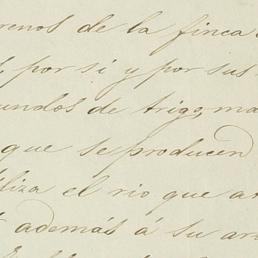 renos de la finca
por sí y por sus
undos de trigo, ma
que se producen
liza el rio que a
además á su ar